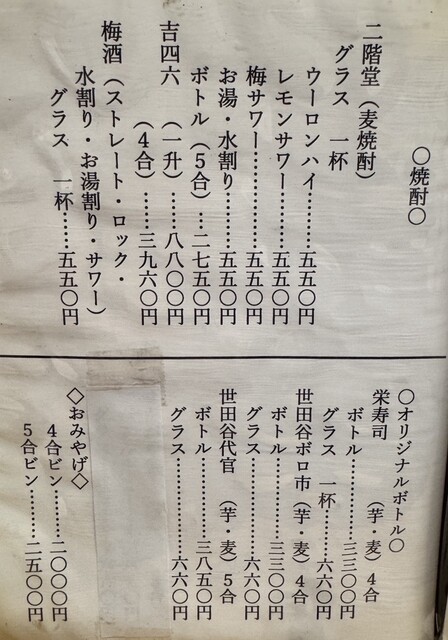 〇焼酎〇
二階堂(麦焼酎)
グラス 一杯
ウーロンハイ……五五〇円
レモンサワー……五五〇円
梅サワー……五五〇円
お湯・水割り……五五〇円
ボトル(5合)…二七五〇円
吉四六 (一升)……八八〇〇円
(4合)……三九六〇円
梅酒(ストレート・ロック・
水割り・お湯割り・サワー)
グラス 一杯……五五〇円
〇オリジナルボトル〇
栄寿司 (芋・麦)4合
ボトル……三三〇〇円
グラス 一杯……六六〇円
世田谷ボロ市(芋・麦)4合
ボトル……三三〇〇円
グラス……六六〇円
世田谷代官 (芋・麦)5合
ボトル……三八五〇円
グラス……六六〇円
◇おみやげ◇
4合ビン……二〇〇〇円
5合ビン……二五〇〇円